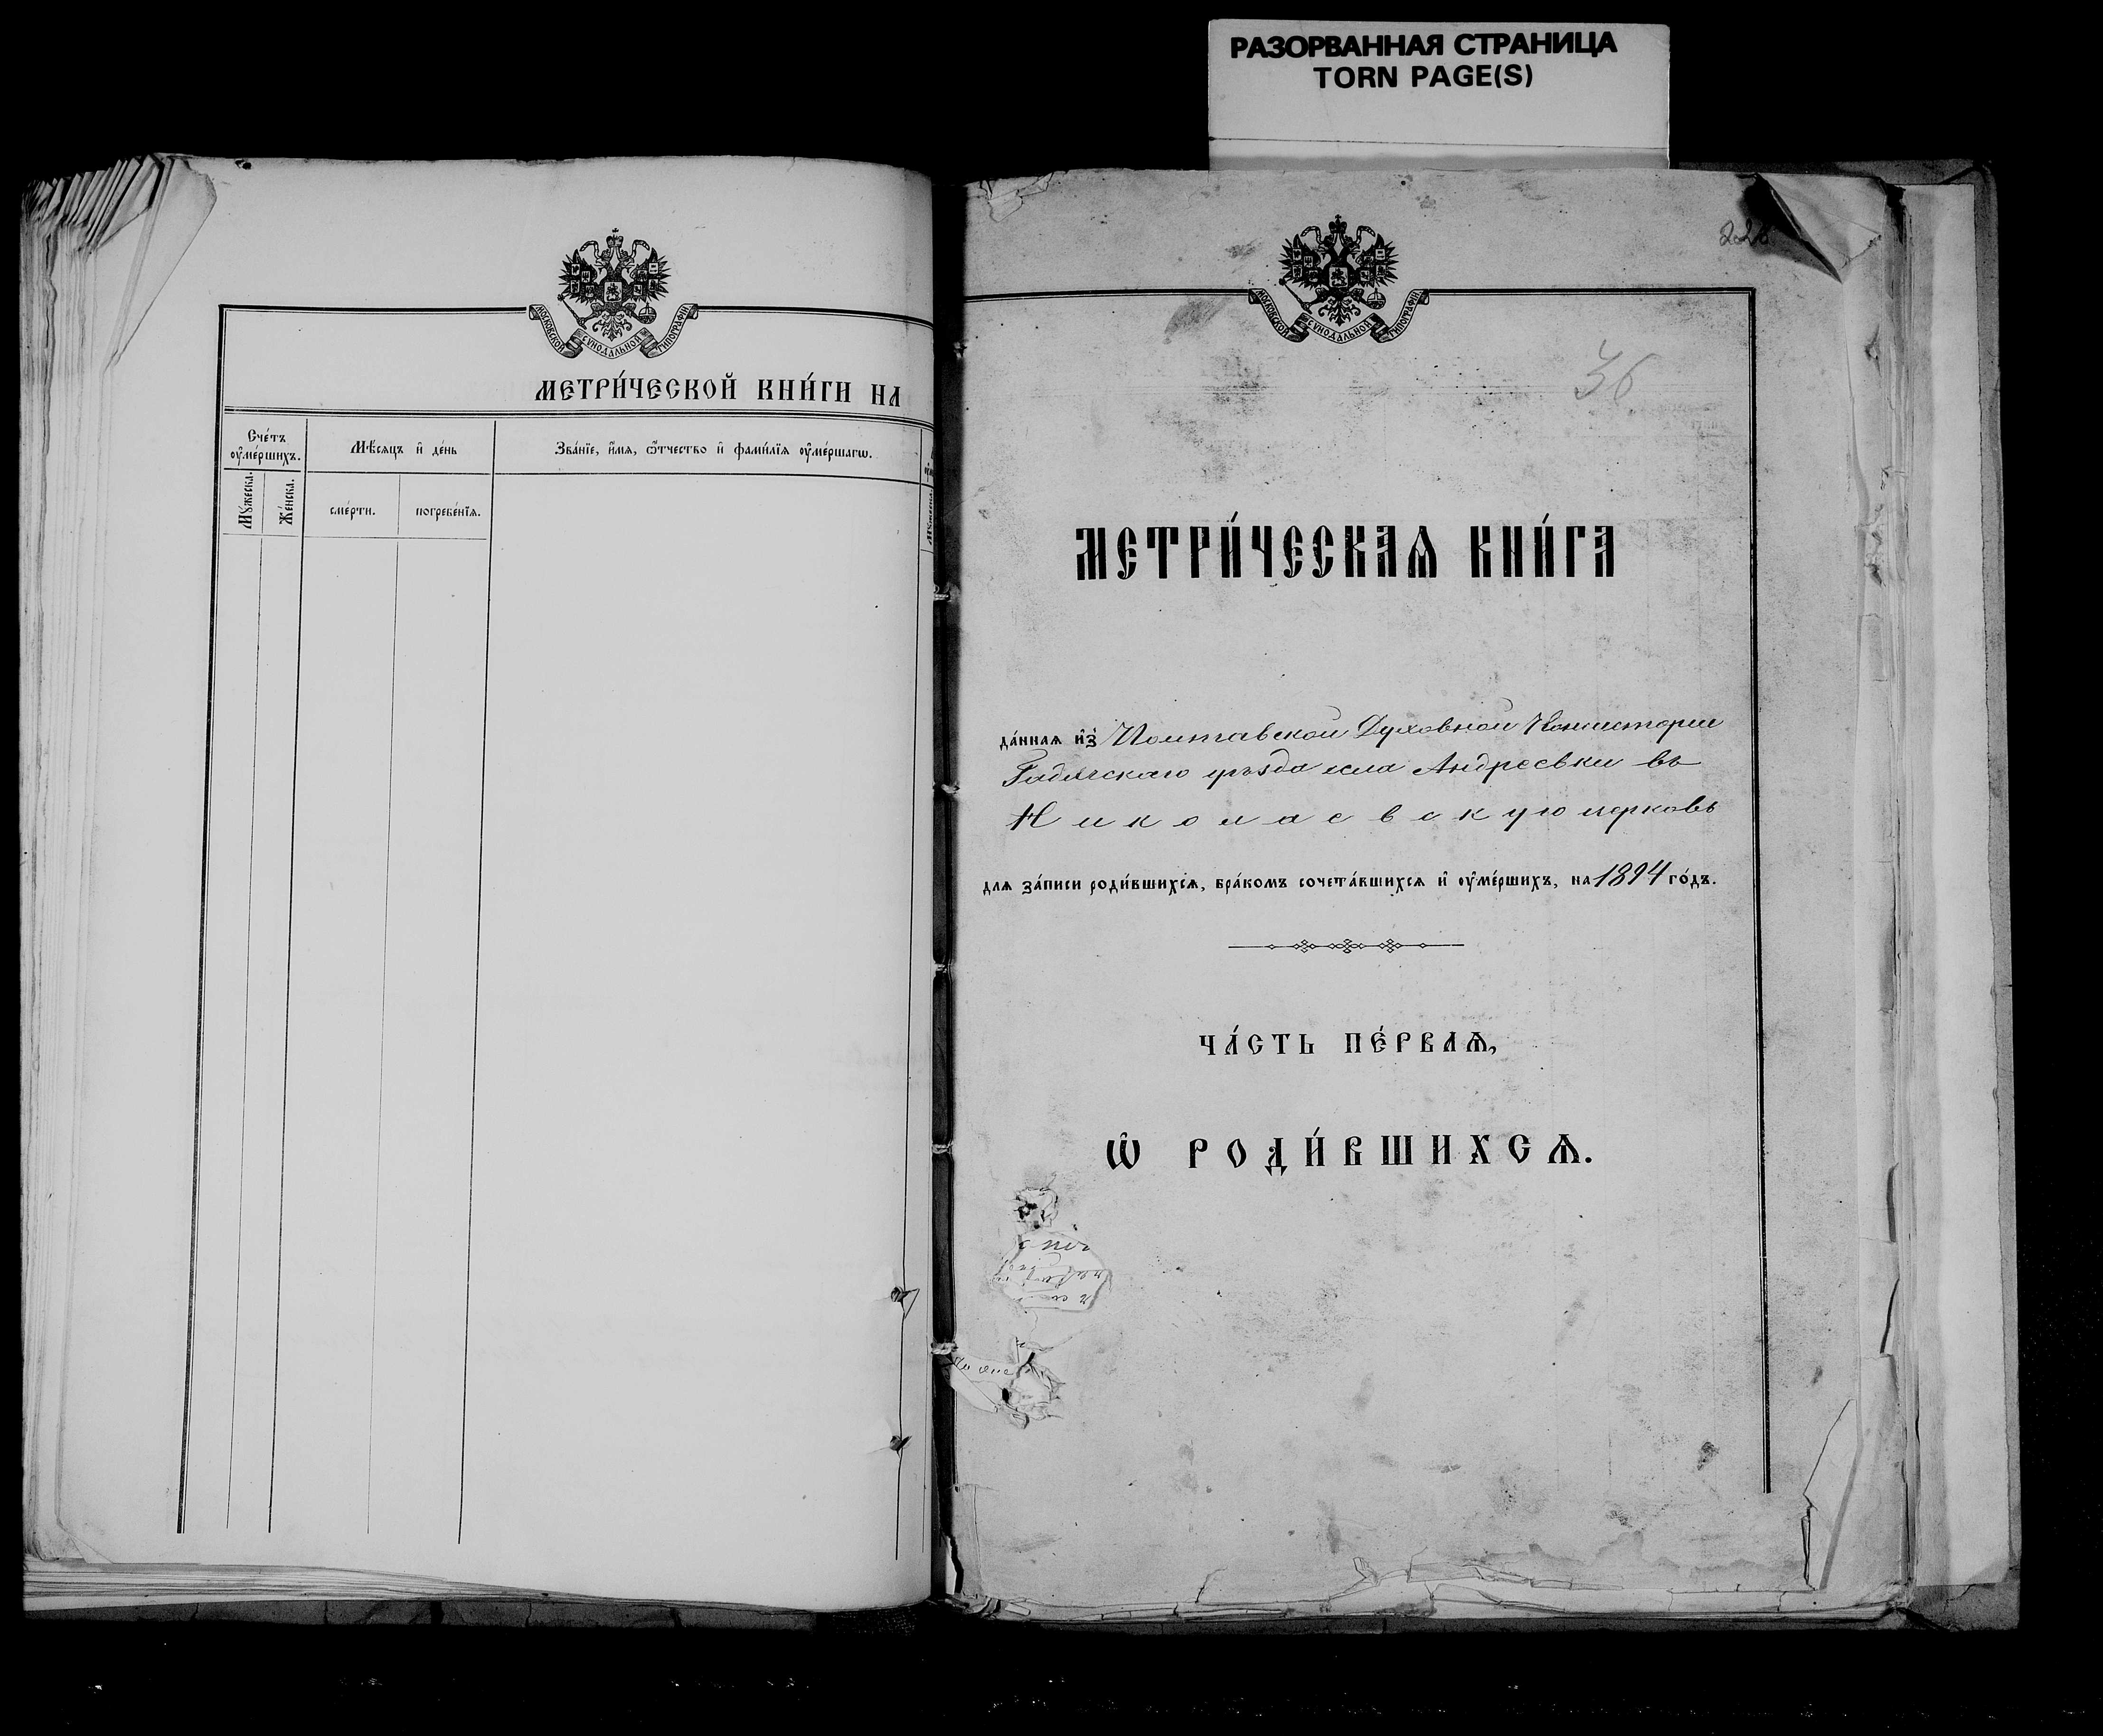 РАЗОРВАННАЯ СТРАНИЦА
TORN PAGE(S)
МОСКОВСКОЙ СѴНОДАЛЬНОЙ ТИПОГРАФІИ
МЕТРИ́ЧЕСКОЙ КНИ́ГИ НА
Сче́тъ ᲂу҆ме́ршихъ.
Мѣ́сяцъ и҆ де́нь
Зва́нїе, и҆́мѧ, ѿтчество и҆ фами́лїѧ ᲂу҆ме́ршагѡ.
Мꙋ́жеска.
Же́нска.
сме́рти.
погребе́нїѧ.
МОСКОВСКОЙ СѴНОДАЛЬНОЙ ТИПОГРАФІИ
36
МЕТРИ́ЧЕСКАѦ КНИ́ГА
да́ннаѧ и҆з̾ Полтавской Духовной Консисторіи
Гадячскаго уѣзда села Андреевки въ
Николаевскую церковь
длѧ за́писи роди́вшихсѧ, бра́комъ сочета́вшихсѧ и҆ ᲂу҆ме́ршихъ, на 1894 го́дъ.
ЧА́СТЬ ПЕ́РВАѦ,
Ѡ҆ РОДИ́ВШИХСѦ.